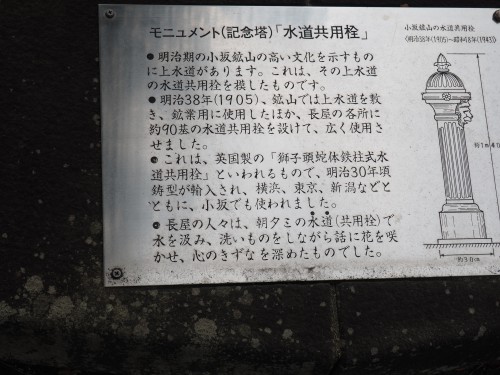 モニュメント(記念塔)「水道共用栓」
●明治期の小坂鉱山の高い文化を示すもの
に上水道があります。これは、その上水道
の水道共用栓を模したものです。
●明治38年(1905)、鉱山では上水道を敷
き、鉱業用に使用したほか、長屋の各所に
約90基の水道共用栓を設けて、広く使用さ
せました。
●これは、英国製の「獅子頭蛇体鉄柱式水
道共用栓」といわれるもので、明治30年頃
鋳型が輸入され、横浜、東京、新潟などと
ともに、小坂でも使われました。
●長屋の人々は、朝夕ミの水道(共用栓)で
水を汲み、洗いものをしながら話に花を咲
かせ、心のきずなを深めたものでした。
小坂鉱山の水道共用栓
(明治38年(1905)~昭和18年(1943))
約1m40
約30cm